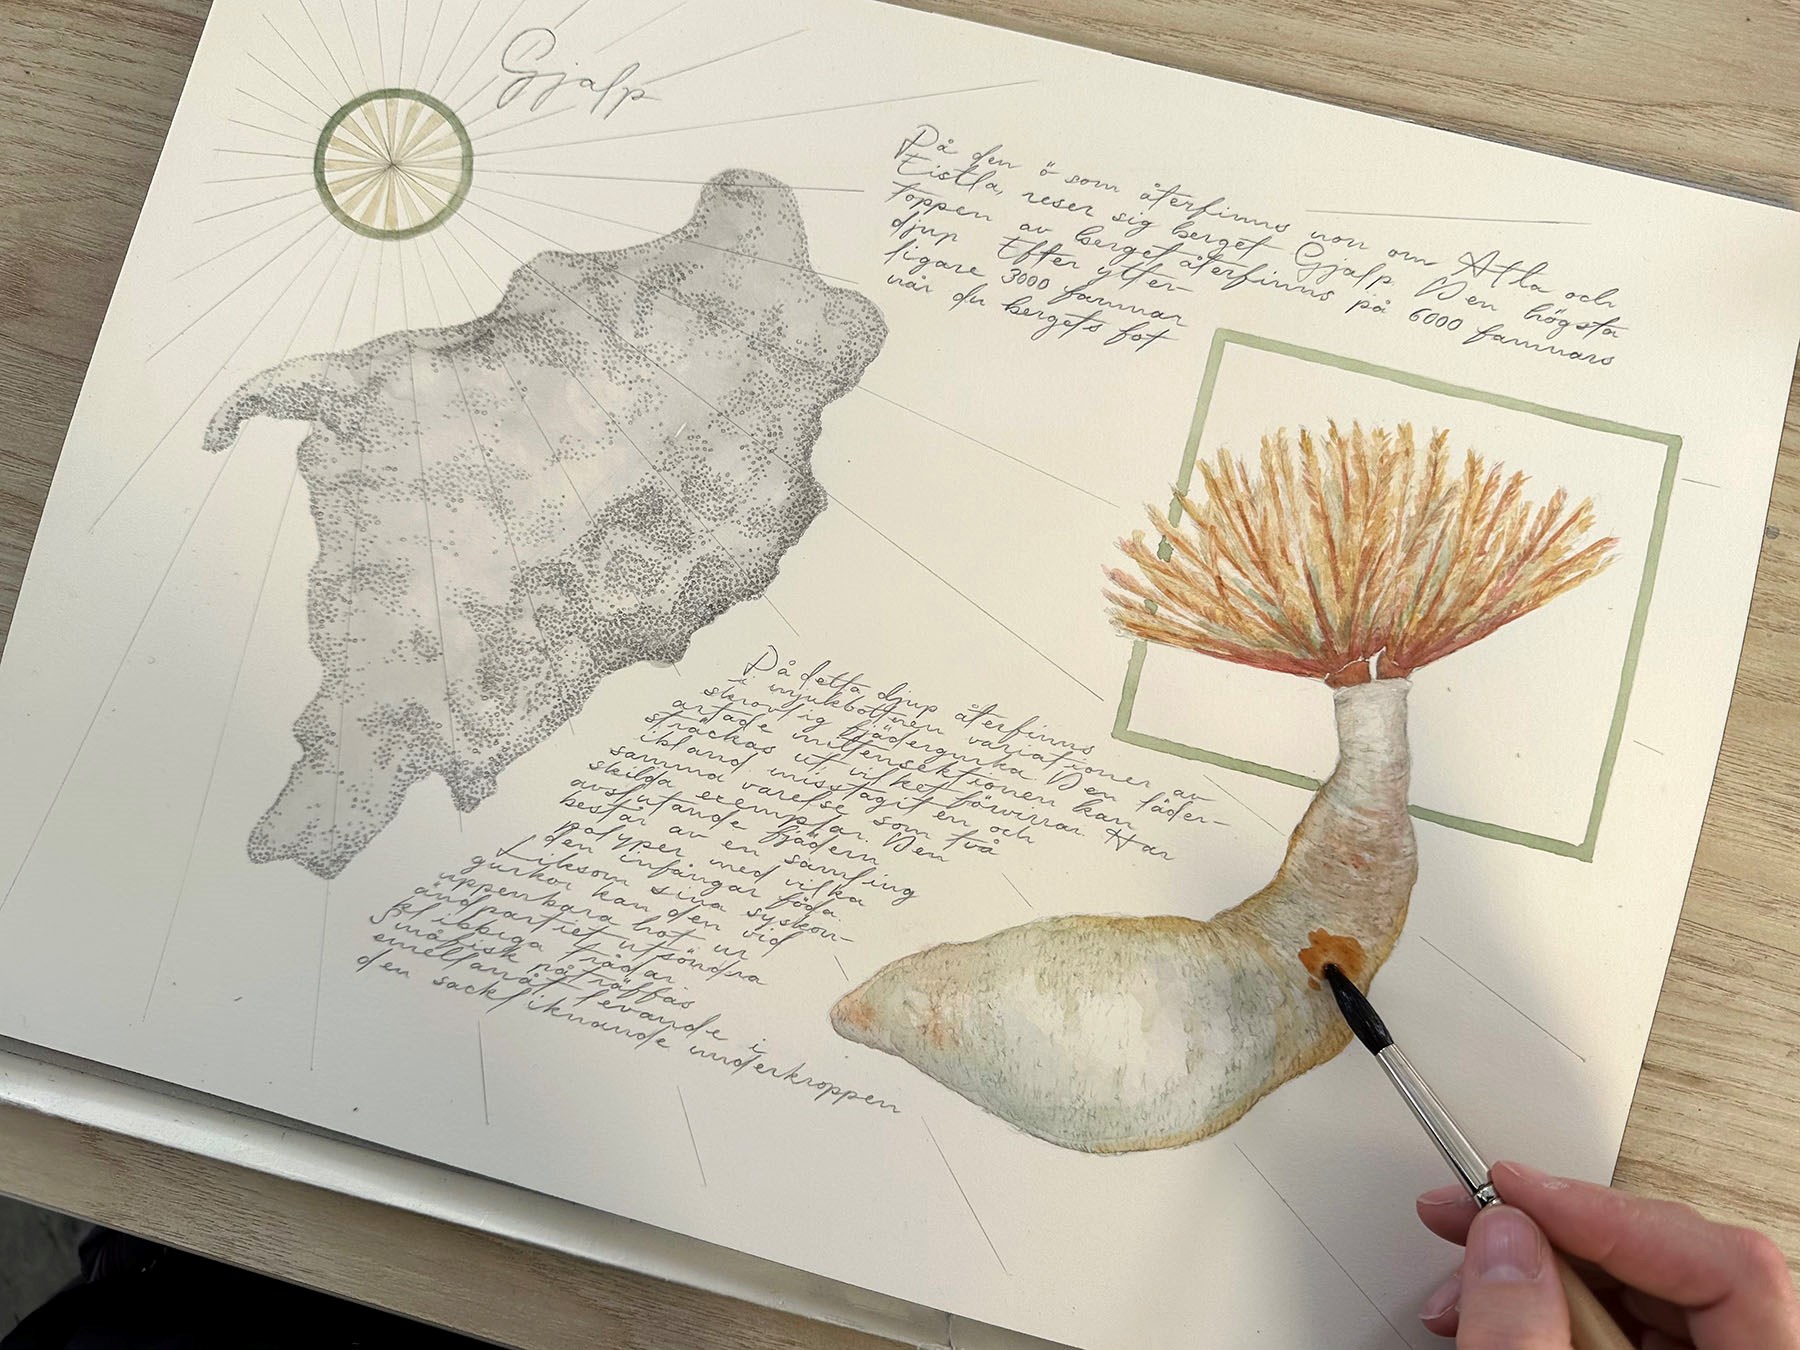 Gjalp
På den ö som återfinns norr om Atla och
Eistla, reser sig berget Gjalp. Den högsta
toppen av berget återfinns på 6000 famnars
djup. Efter ytter-
ligare 3000 famnar
når du bergets fot
På detta djup återfinns
i mjukbottnen variationer av
skrovlig fjädergurka. Den läder-
artade mittensektionen kan
sträckas ut vilket förvirrar. Har
ibland misstagit en och
samma varelse som två
skilda exemplar. Den
avslutande fjädern
består av en samling
polyper med vilka
den infångar föda.
Liksom sina syskon-
gurkor kan den vid
uppenbara hot ur
ändpartiet utsöndra
klibbiga trådar.
Småfisk påträffas
emellanåt levande i
den säckliknande underkroppen